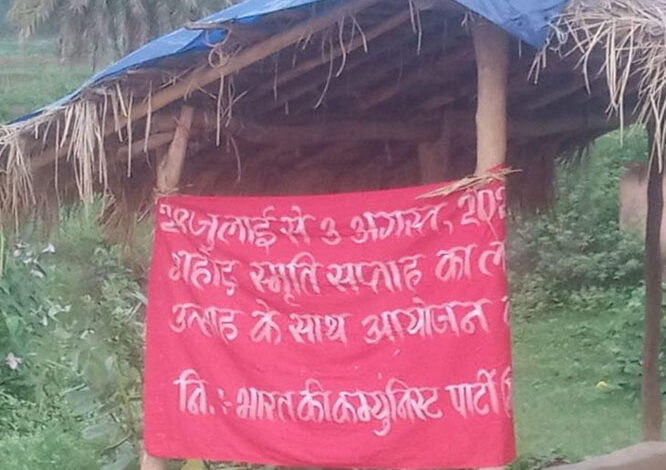 28 जुलाई से 3 अगस्त, 202
शहीद स्मृति सप्ताह का
उत्साह के साथ आयोजन
नि.:- भारत की कम्युनिस्ट पार्टी (